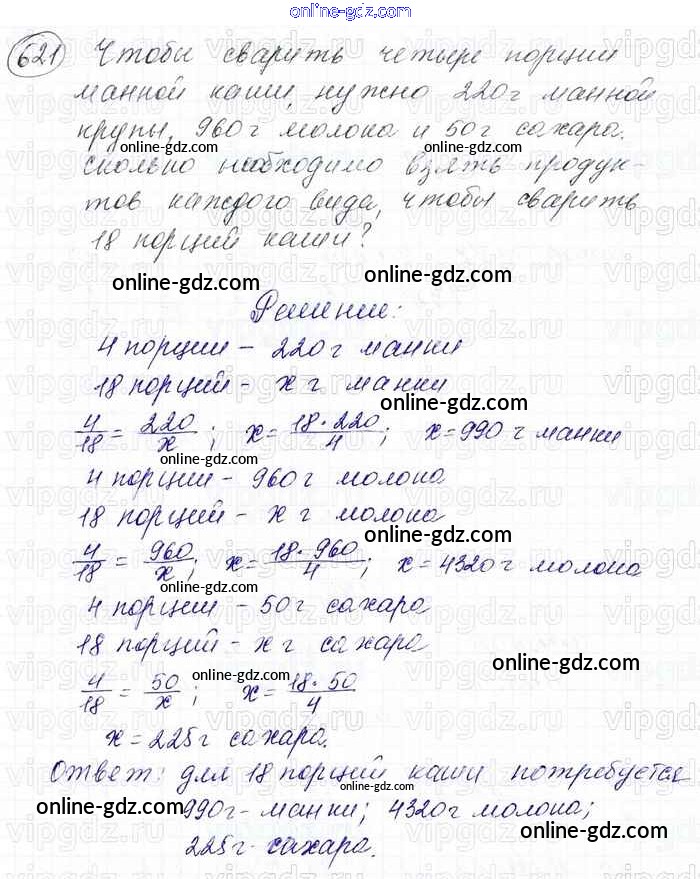 online-gdz.com
621 Чтобы сварить четыре порции
манной каши, нужно 220 г манной
крупы, 960 г молока и 50 г сахара.
Сколько необходимо взять продук-
тов каждого вида, чтобы сварить
18 порций каши?
online-gdz.com
online-gdz.com
Решение:
4 порции - 220 г манки
18 порций - x г манки
online-gdz.com
4/18 = 220/x; x = 18·220/4; x = 990 г манки
online-gdz.com
4 порции - 960 г молока
18 порций - x г молока
online-gdz.com
4/18 = 960/x; x = 18·960/4; x = 4320 г молока
online-gdz.com
4 порции - 50 г сахара
18 порций - x г сахара
online-gdz.com
4/18 = 50/x; x = 18·50/4
online-gdz.com
x = 225 г сахара.
Ответ: для 18 порций каши потребуется
online-gdz.com
990 г - манки; 4320 г молока;
online-gdz.com
online-gdz.com
225 г - сахара.